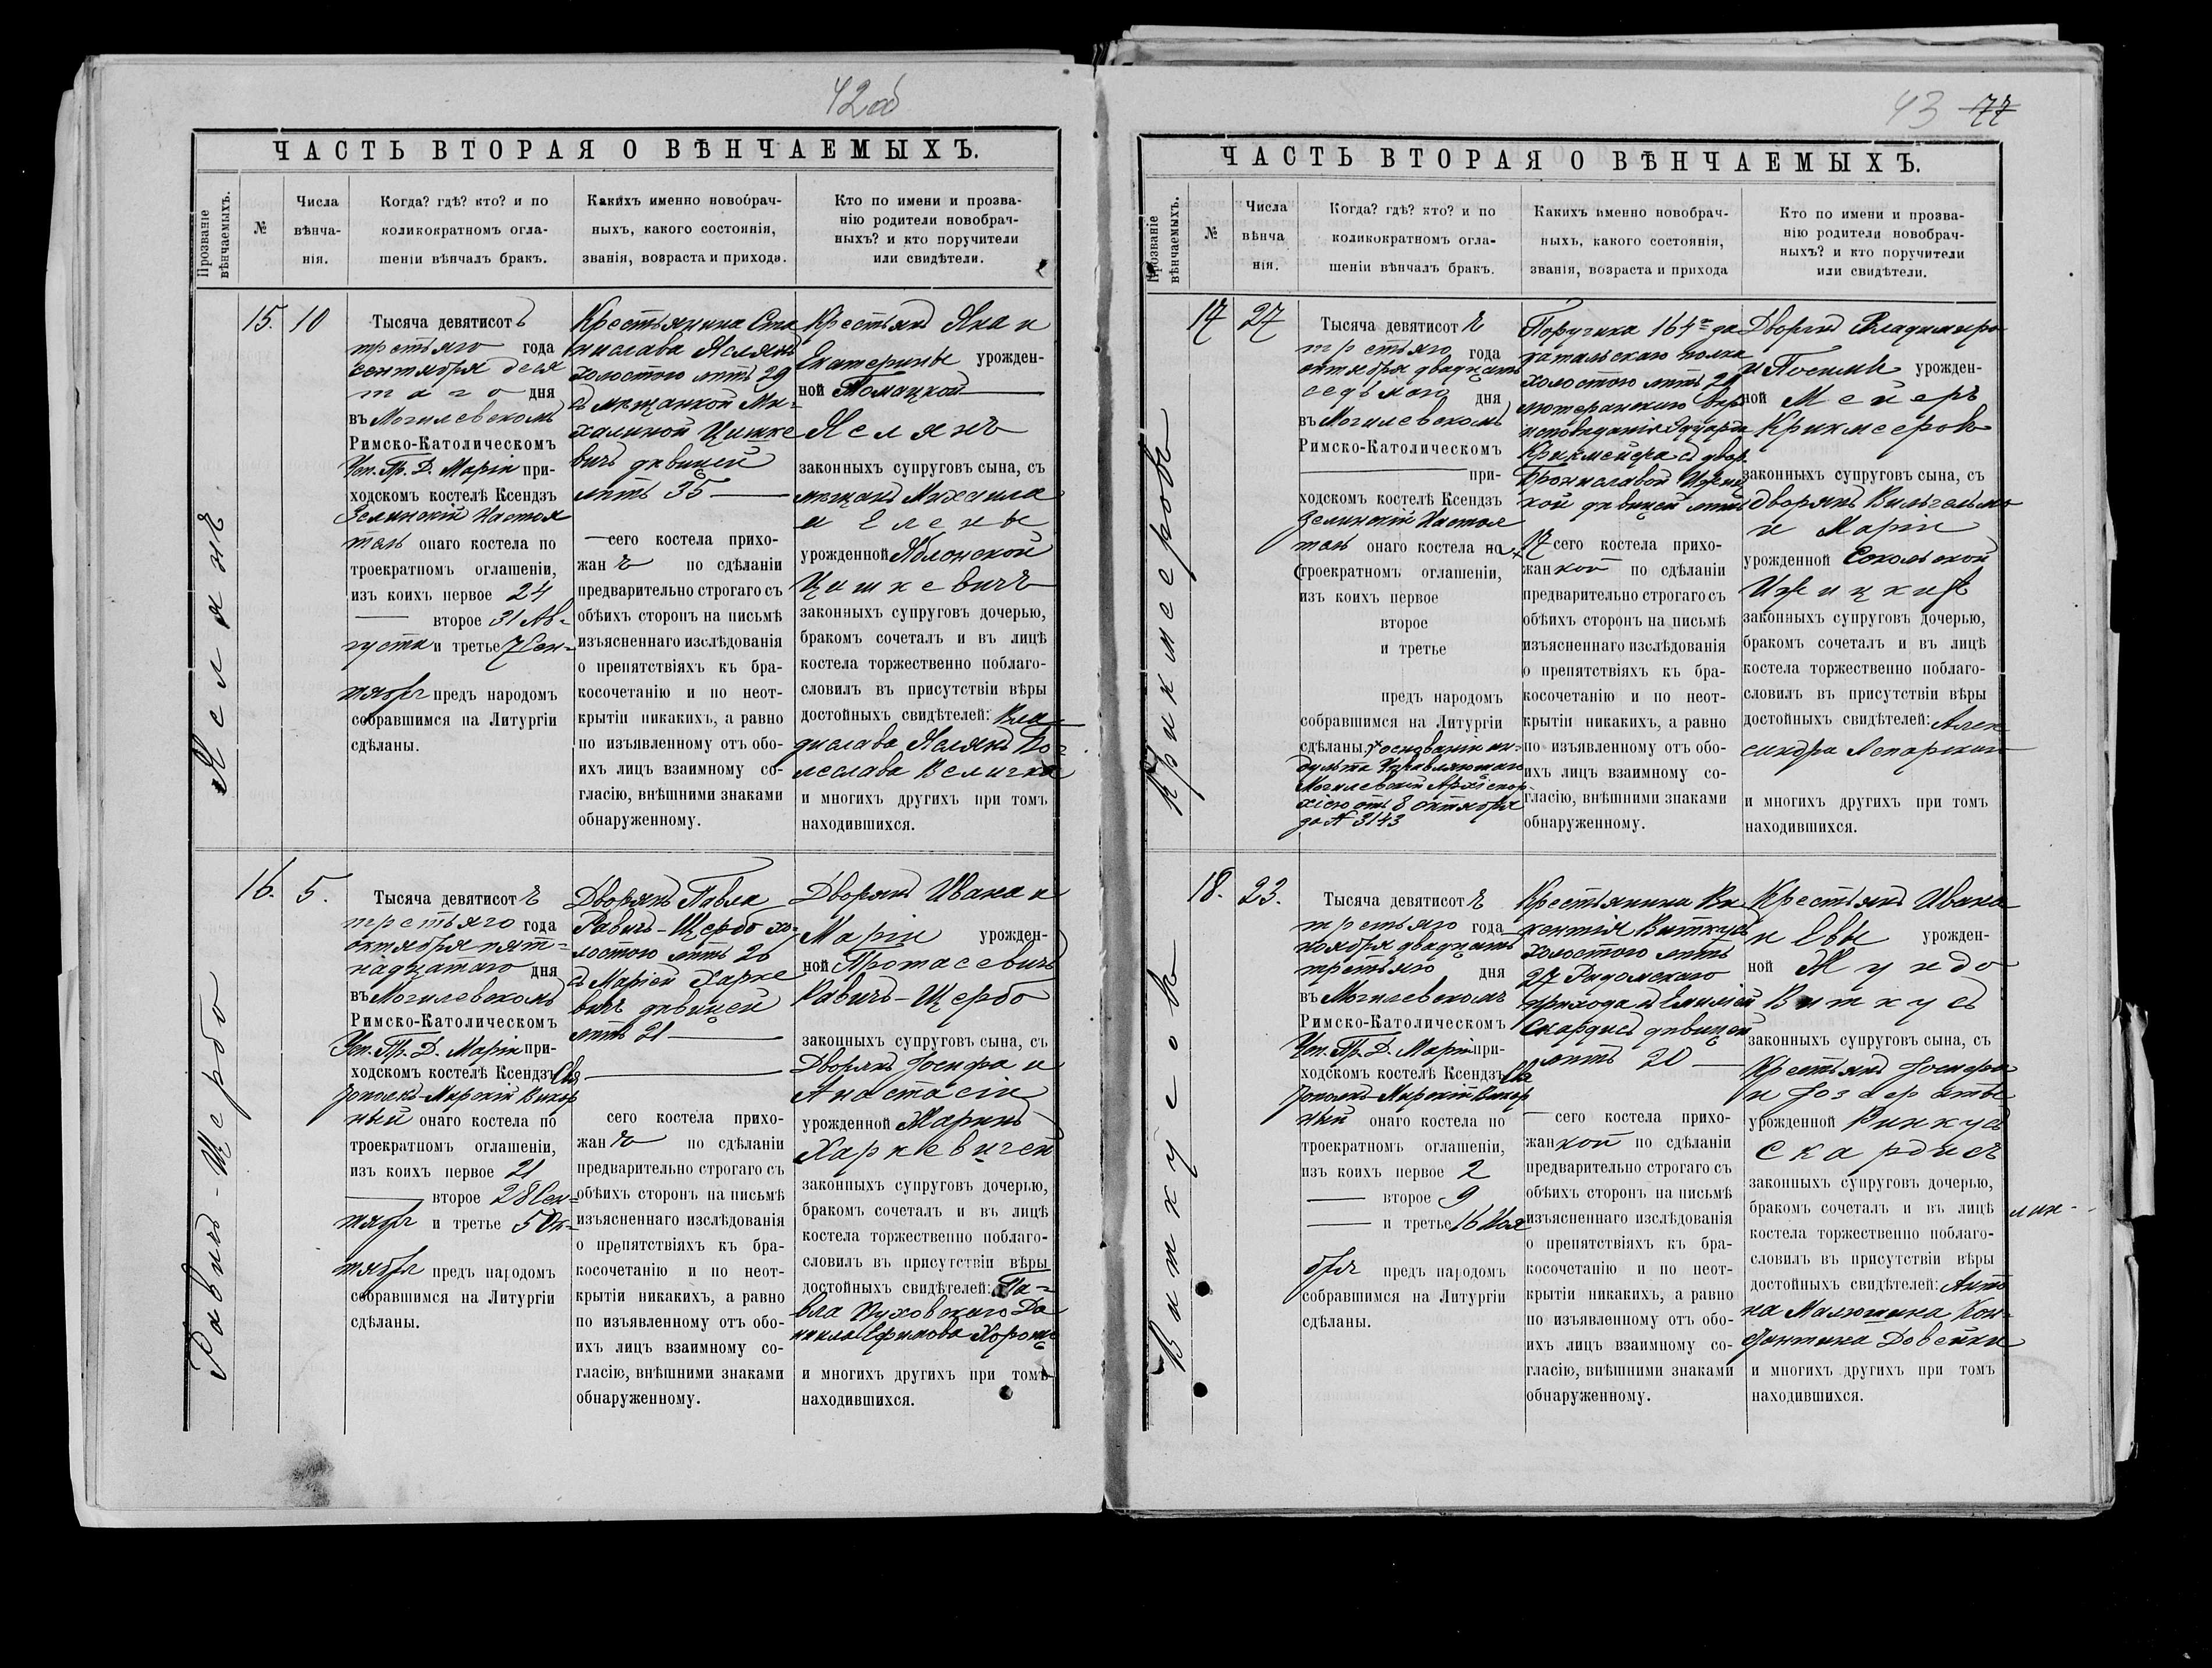 42об
ЧАСТЬ ВТОРАЯ О ВѢНЧАЕМЫХЪ.
Прозваніе вѣнчаемыхъ.
№
Числа вѣнча-
нія.
Когда? гдѣ? кто? и по
коликократномъ огла-
шеніи вѣнчалъ бракъ.
Какихъ именно новобрач-
ныхъ, какого состоянія,
званія, возраста и прихода.
Кто по имени и прозва-
нію родители новобрач-
ныхъ? и кто поручители
или свидѣтели.
15.
10
Тысяча девятисотъ
третьяго года
сентября деся
таго дня
въ Могилевскомъ
Римско-Католическомъ
Усп. Пр. Д. Маріи при-
ходскомъ костелѣ Ксендзъ
Зелинскій Настоя
тель онаго костела по
троекратномъ оглашеніи,
изъ коихъ первое 24
второе 31 Ав-
густа и третье 7 Сен-
тября предъ народомъ
собравшимся на Литургіи
сдѣланы.
Крестьянина Ста
нислава Яслянъ
холостого лѣтъ 29
съ мѣщанкой Ми-
халиной Цишке
вичъ дѣвицей
лѣтъ 35
сего костела прихо-
жанъ по сдѣланіи
предварительно строгаго съ
обѣихъ сторонъ на письмѣ
изъясненнаго изслѣдованія
о препятствіяхъ къ бра-
косочетанію и по неот-
крытіи никакихъ, а равно
по изъявленному отъ обо-
ихъ лицъ взаимному со-
гласію, внѣшними знаками
обнаруженному.
Крестьянъ Яна и
Екатерины урожден-
ной Томацкой
Яслянъ
законныхъ супруговъ сына, съ
мѣщанъ Михаила
и Елены
урожденной Яблонской
Цишкевичъ
законныхъ супруговъ дочерью,
бракомъ сочеталъ и въ лицѣ
костела торжественно поблаго-
словилъ въ присутствіи вѣры
достойныхъ свидѣтелей: Вла-
дислава Яслянъ Бо-
леслава Величко
и многихъ другихъ при томъ
находившихся.
Равичъ-Щербо
16.
5.
Тысяча девятисотъ
третьяго года
октября пят-
надцатаго дня
въ Могилевскомъ
Римско-Католическомъ
Усп. Пр. Д. Маріи при-
ходскомъ костелѣ Ксендзъ Свя
тополкъ-Мирскій Викар
ный онаго костела по
троекратномъ оглашеніи,
изъ коихъ первое 21
второе 28 Сен-
тября и третье 5 Ок-
тября предъ народомъ
собравшимся на Литургіи
сдѣланы.
Дворянъ Павла
Равичъ-Щербо хо-
лостого лѣтъ 26
съ Маріей Харке
вичъ дѣвицей
лѣтъ 21
сего костела прихо-
жанъ по сдѣланіи
предварительно строгаго съ
обѣихъ сторонъ на письмѣ
изъясненнаго изслѣдованія
о препятствіяхъ къ бра-
косочетанію и по неот-
крытіи никакихъ, а равно
по изъявленному отъ обо-
ихъ лицъ взаимному со-
гласію, внѣшними знаками
обнаруженному.
Дворянъ Ивана и
Маріи урожден-
ной Протасевичъ
Равичъ-Щербо
законныхъ супруговъ сына, съ
Дворянъ Іосифа и
Анастасіи
урожденной Маринъ
Харкевичей
законныхъ супруговъ дочерью,
бракомъ сочеталъ и въ лицѣ
костела торжественно поблаго-
словилъ въ присутствіи вѣры
достойныхъ свидѣтелей: Па-
вла Пуховскаго Да
ніила Ефимова
и многихъ другихъ при томъ
находившихся.
43 77
ЧАСТЬ ВТОРАЯ О ВѢНЧАЕМЫХЪ.
Прозваніе вѣнчаемыхъ.
№
Числа вѣнча
нія.
Когда? гдѣ? кто? и по
коликократномъ огла-
шеніи вѣнчалъ бракъ.
Какихъ именно новобрач-
ныхъ, какого состоянія,
званія, возраста и прихода
Кто по имени и прозва-
нію родители новобрач-
ныхъ? и кто поручители
или свидѣтели.
17
27
Тысяча девятисотъ
третьяго года
октября двадцать
седьмого дня
въ Могилевскомъ
Римско-Католическомъ
при-
ходскомъ костелѣ Ксендзъ
Зелинскій Настоя
тель онаго костела на
троекратномъ оглашеніи,
изъ коихъ первое
второе
и третье
предъ народомъ
собравшимся на Литургіи
сдѣланы. основаніи ин-
дульта Управляющаго
Могилевской Архіепар-
хіею отъ 8 октября
за № 3143
Поручика 164го За
катальскаго полка
холостого лѣтъ 29
лютеранскаго вѣро
исповѣданія Эдуарда
Крикмейера съ двор.
Брониславой Ижиц
кой дѣвицей лѣтъ
17 сего костела прихо-
жанкой по сдѣланіи
предварительно строгаго съ
обѣихъ сторонъ на письмѣ
изъясненнаго изслѣдованія
о препятствіяхъ къ бра-
косочетанію и по неот-
крытіи никакихъ, а равно
по изъявленному отъ обо-
ихъ лицъ взаимному со-
гласію, внѣшними знаками
обнаруженному.
Дворянъ Владимира
и урожден-
ной Мейеръ
Крикмееровъ
законныхъ супруговъ сына, съ
Дворянъ Вильгельма
и Маріи
урожденной Сокольской
Ижицкихъ
законныхъ супруговъ дочерью,
бракомъ сочеталъ и въ лицѣ
костела торжественно поблаго-
словилъ въ присутствіи вѣры
достойныхъ свидѣтелей: Алек
сандра
и многихъ другихъ при томъ
находившихся.
18.
23.
Тысяча девятисотъ
третьяго года
ноября двадцать
третьяго дня
въ Могилевскомъ
Римско-Католическомъ
Усп. Пр. Д. Маріи при-
ходскомъ костелѣ Ксендзъ Свя
тополкъ-Мирскій Викар
ный онаго костела по
троекратномъ оглашеніи,
изъ коихъ первое 2
второе 9
и третье 16 Ноя
бря предъ народомъ
собравшимся на Литургіи
сдѣланы.
Крестьянина Ви
кентія Виткусъ
холостого лѣтъ
27
прихода съ Емиліей
Скардисъ дѣвицей
лѣтъ 20
сего костела прихо-
жанкой по сдѣланіи
предварительно строгаго съ
обѣихъ сторонъ на письмѣ
изъясненнаго изслѣдованія
о препятствіяхъ къ бра-
косочетанію и по неот-
крытіи никакихъ, а равно
по изъявленному отъ обо-
ихъ лицъ взаимному со-
гласію, внѣшними знаками
обнаруженному.
Крестьянъ Ивана
и Евы урожден-
ной Жундо
Виткусъ
законныхъ супруговъ сына, съ
Крестьянъ Іосифа
и Іозефаты
урожденной Винкусъ
Скардисъ
законныхъ супруговъ дочерью,
бракомъ сочеталъ и въ лицѣ
костела торжественно поблаго-
словилъ въ присутствіи вѣры
достойныхъ свидѣтелей: Анто
на Малюшина Кон-
стантина Довейки
и многихъ другихъ при томъ
находившихся.